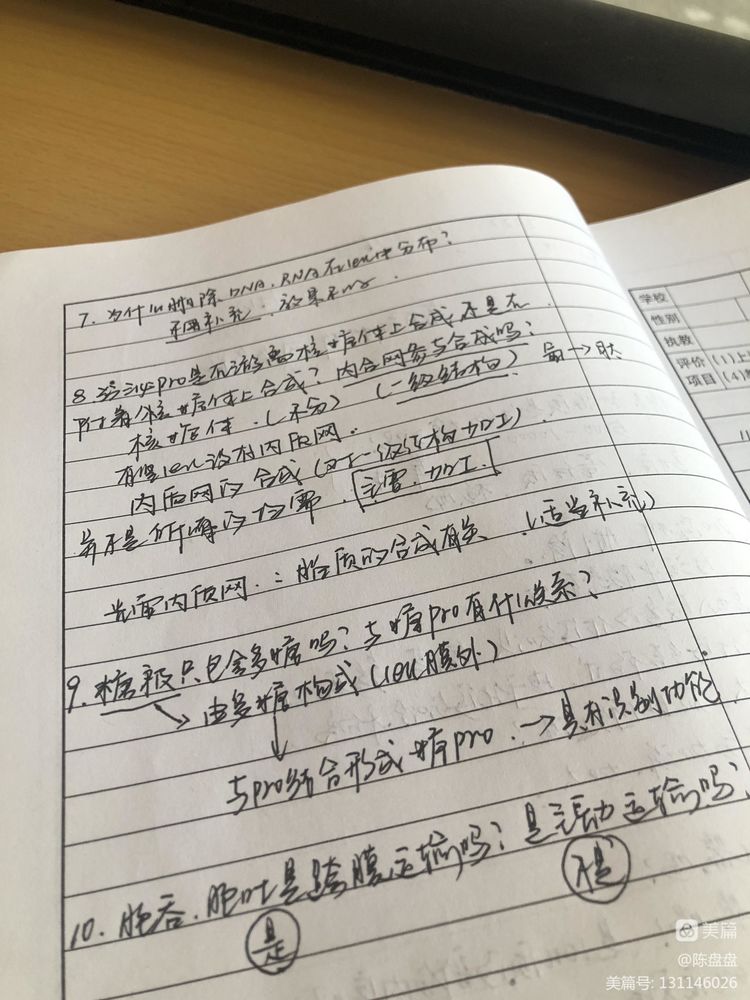 7. 为什么删除DNA.RNA在cell中分布?
不用补充. 效果不好
8. 分泌pro是在游离核糖体上合成还是在
附着核糖体上合成? 内含网参与合成吗?
核糖体. (不含) (二级结构) 氨→肽
有些cell没有内质网.
内质网的合成 (对于一级结构加工)
并不是所谓的场需. 主要.加工.
光面内质网.: 脂质的合成有关 (适当补充)
9. 糖被只包含多糖吗? 与糖pro有什么关系?
由多糖构成 (cell膜外)
与pro结合形成糖pro. → 具有识别功能
10. 胞吞.胞吐是跨膜运输吗? 是主动运输吗?
是 不是
学校
性别
执教
评价 (1)上
项目 (4)
美篇
@陈盘盘
美篇号: 131146026